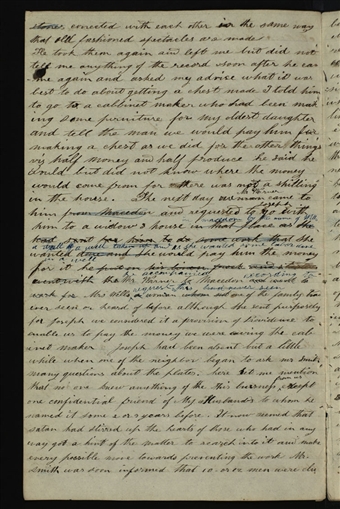 stones connected with each other in the same way
that old fashioned spectacles are made
He took them again and left me but did not
tell me anything of the record soon after he cam
me again and asked my advise what it was
best to do about getting a chest made I told him
to go to a cabinet maker who had been mak
ing some furniture for my oldest daughter
and tell the man we would pay him for
making a chest as we did for the other things
viz half money and half produce he said he
would but did not know where the money
would come from for there was not a shilling
in the house. The next day a man came to
him from Macedon and requested to go with
him to a widow's house in that place as she
wanted and she would pay him the money
for it
work for Mrs Wells a woman one of the family
ever seen or heard of before although she sent purposely
for Joseph we considered it a provision of Providence to
enable us to pay the money we were owing the cabi
inet maker. Joseph had been absent but a little
while when one of the neighbors began to ask Mr Smith
many questions about the plates. here let me mention
that no one knew anything of this buisness except
one confidential friend of My Husbands to whom he
named it some 2 or 3 years before. It now seemed that
satan had stirred up the hearts of those who had in any
way got a hint of the matter to search into it and make
every possible move towards preventing the work Mr.
Smith was soon informed that 10 or 12 men were clu